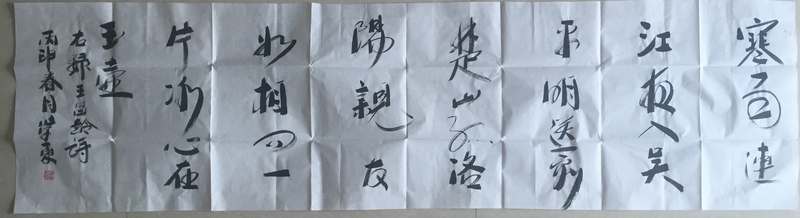 寒雨連
江夜入吴
平明送别
楚山孤洛
陽親友
如相问一
片冰心在
玉壶
右録王昌龄詩
丙申春月